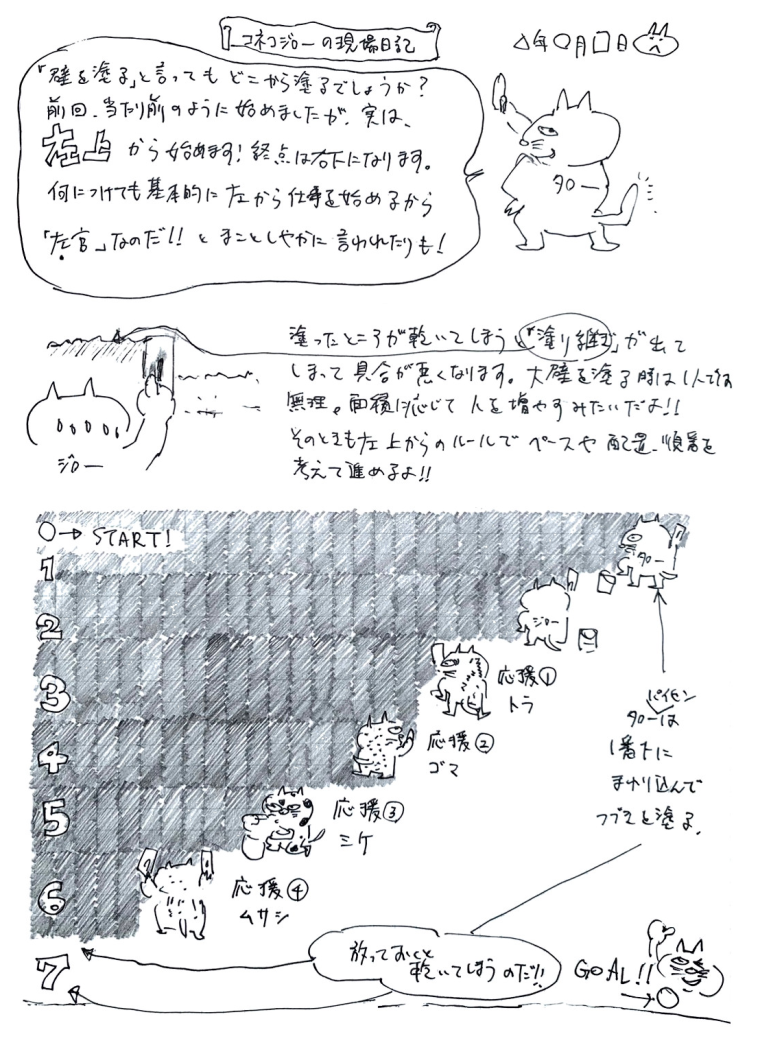 コネコジローの現場日記
△年○月□日
「壁を塗る」と言っても どこから塗るでしょうか?
前回、当たり前のように始めましたが、実は、
左上 から始めます! 終点は右下になります。
何につけても基本的に左から仕事を始めるから
「左官」なのだ!! とまことしやかに言われたりも!
タロー
塗ったところが乾いてしまうと「塗り継ぎ」が出て
しまって具合が悪くなります。大壁を塗る時は1人では
無理。面積に応じて人を増やすみたいだよ!!
そのときも左上からのルールでペースや配置、順番を
考えて進めるよ!!
ジロー
○→START!
1
2
3
4
5
6
7
タロー
ジロー
応援①
トラ
応援②
ゴマ
応援③
ミケ
応援④
ムサシ
パイセン
タローは
1番下に
まわり込んで
つづきを塗る。
放っておくと
乾いてしまうのだ!!
GOAL!!
→○